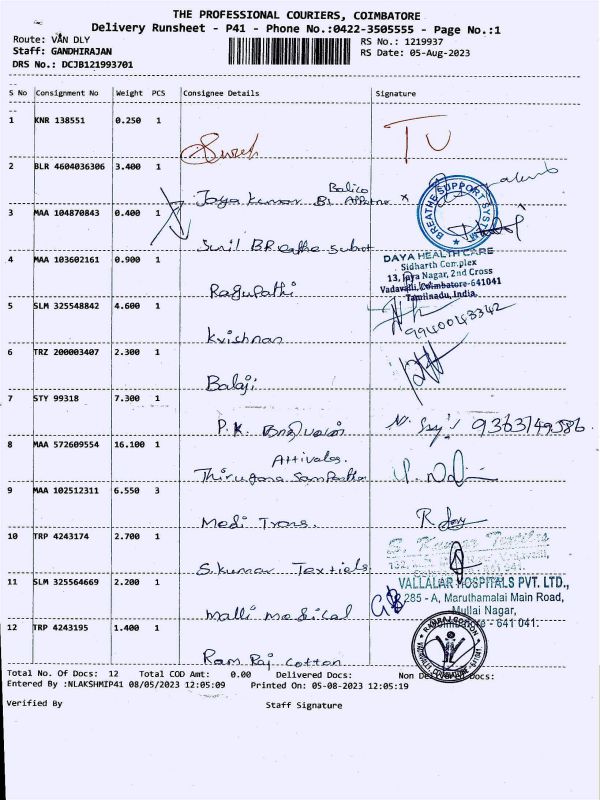 THE PROFESSIONAL COURIERS, COIMBATORE
Delivery Runsheet - P41 - Phone No.:0422-3505555 - Page No.:1
Route: VAN DLY
RS No.: 1219937
Staff: GANDHIRAJAN
RS Date: 05-Aug-2023
DRS No.: DCJB121993701
S No Consignment No Weight PCS Consignee Details Signature
1 KNR 138551 0.250 1
Suresh
2 BLR 4604036306 3.400 1
Jaya Kumar
3 MAA 104870843 0.400 1
BREATHE SUPPORT SYSTEM
Sunil BReathe
4 MAA 103602161 0.900 1
DAYA HEALTH CARE
Sidharth Complex
13, Jaya Nagar, 2nd Cross
Vadavalli, Coimbatore-641041
Tamilnadu, India.
Ragupathi
5 SLM 325548842 4.600 1
9940043342
Krishnan
6 TRZ 200003407 2.300 1
Balaji
7 STY 99318 7.300 1
P.K.
9363749586
8 MAA 572609554 16.100 1
9 MAA 102512311 6.550 3
Medi Trans.
10 TRP 4243174 2.700 1
S. Kumar
S.kumar Textials
11 SLM 325564669 2.200 1
VALLALAR HOSPITALS PVT. LTD.,
285 - A, Maruthamalai Main Road,
Mullai Nagar,
Coimbatore - 641 041.
Malli medical
12 TRP 4243195 1.400 1
RAMRAJ COTTON
Ram Raj cotton
Total No. Of Docs: 12 Total COD Amt: 0.00 Delivered Docs: Non Docs:
Entered By :NLAKSHMIP41 08/05/2023 12:05:09 Printed On: 05-08-2023 12:05:19
Verified By Staff Signature